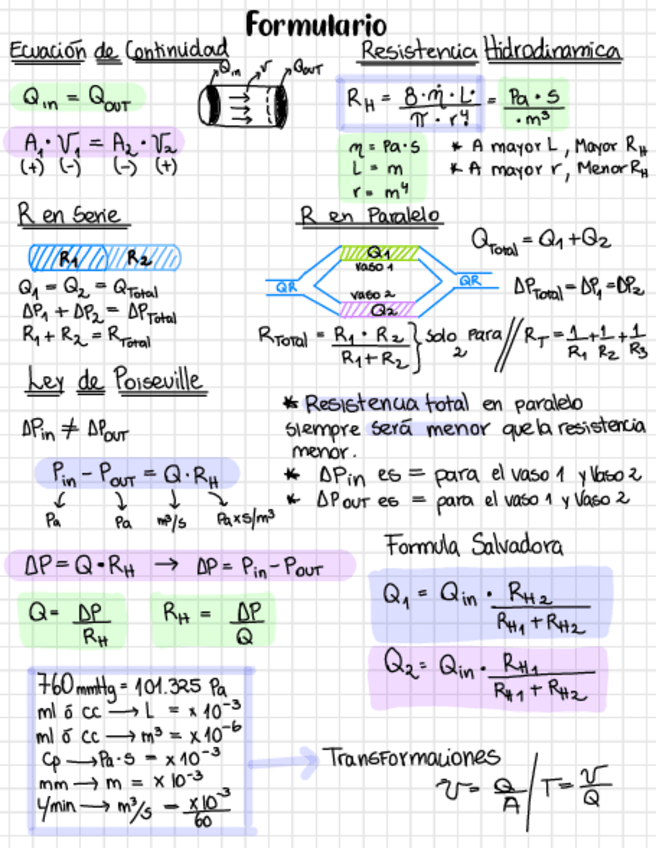 Formulario
Ecuación de Continuidad
Q_in V Q_OUT
Q_in = Q_OUT
A_1 · V_1 = A_2 · V_2
(+) (-) (-) (+)
Resistencia Hidrodinamica
R_H = 8·η·L· / π·r^4 = Pa·s / ·m³
η = Pa·s
L = m
r = m⁴
* A mayor L, Mayor R_H
* A mayor r, Menor R_H
R en Serie
R1 R2
Q_1 = Q_2 = Q_Total
ΔP_1 + ΔP_2 = ΔP_Total
R_1 + R_2 = R_Total
R en Paralelo
Q1
vaso 1
QR QR
vaso 2
Q2
Q_Total = Q_1 + Q_2
ΔP_Total = ΔP_1 = ΔP_2
R_Total = R_1 · R_2 / R_1 + R_2 } solo para 2 // R_T = 1/R_1 + 1/R_2 + 1/R_3
Ley de Poiseville
ΔP_in ≠ ΔP_OUT
P_in - P_OUT = Q · R_H
Pa Pa m³/s Pa×s/m³
* Resistencia total en paralelo
siempre será menor que la resistencia
menor.
* ΔP in es = para el vaso 1 y Vaso 2
* ΔP OUT es = para el vaso 1 y Vaso 2
ΔP = Q · R_H → ΔP = P_in - P_OUT
Q = ΔP / R_H
R_H = ΔP / Q
Formula Salvadora
Q_1 = Q_in · R_H2 / R_H1 + R_H2
Q_2 = Q_in · R_H1 / R_H1 + R_H2
760 mmHg = 101.325 Pa
ml ó cc → L = x 10⁻³
ml ó cc → m³ = x 10⁻⁶
Cp → Pa·s = x 10⁻³
mm → m = x 10⁻³
L/min → m³/s = x10⁻³ / 60
Transformaciones
V = Q / A / T = V / Q